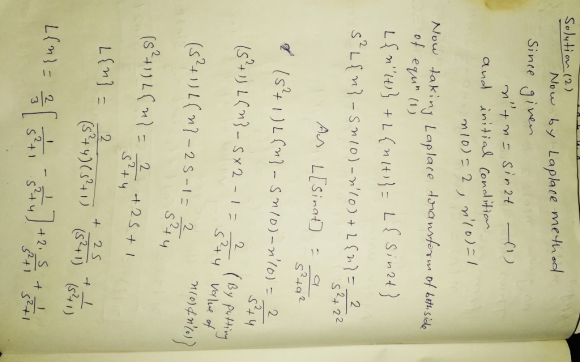 Solution(2)
Now by Laplace method
Since given
x'' + x = Sin2t —(1)
and initial condition
x(0) = 2, x'(0) = 1
Now taking Laplace transform of both side
of equⁿ (1)
L{x''(t)} + L{x(t)} = L{Sin2t}
S²L{x} - Sx(0) - x'(0) + L{x} = 2/(S²+2²)
As L[Sinat] = a/(S²+a²)
(S²+1)L{x} - Sx(0) - x'(0) = 2/(S²+4)
(S²+1)L{x} - S×2 - 1 = 2/(S²+4) (By putting
value of
x(0) & x'(0)}
(S²+1)L{x} - 2S - 1 = 2/(S²+4)
(S²+1)L{x} = 2/(S²+4) + 2S + 1
L{x} = 2/((S²+4)(S²+1)) + 2S/(S²+1) + 1/(S²+1)
L{x} = 2/3 [1/(S²+1) - 1/(S²+4)] + 2·S/(S²+1) + 1/(S²+1)